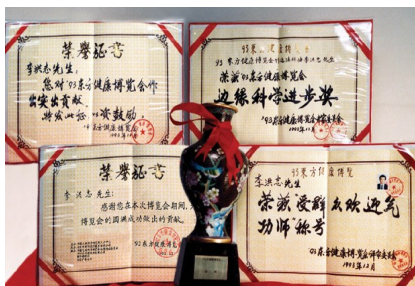 荣誉证书
李洪志先生:
您对'93东方健康博览会作
出突出贡献,
特发此证 以资鼓励
'93东方健康博览会
1993年12月
荣获'93东方健康博览会
边缘科学进步奖
'93东方健康博览会评审委员会
1993年12月
荣誉证书
李洪志先生:
感谢您在本次博览会期间,为
博览会的圆满成功做出的贡献。
'93东方健康博览会
93东方健康博览
李洪志先生
荣获受群众欢迎气
功师"称号
'93东方健康博览会评审委员会
1993年12月